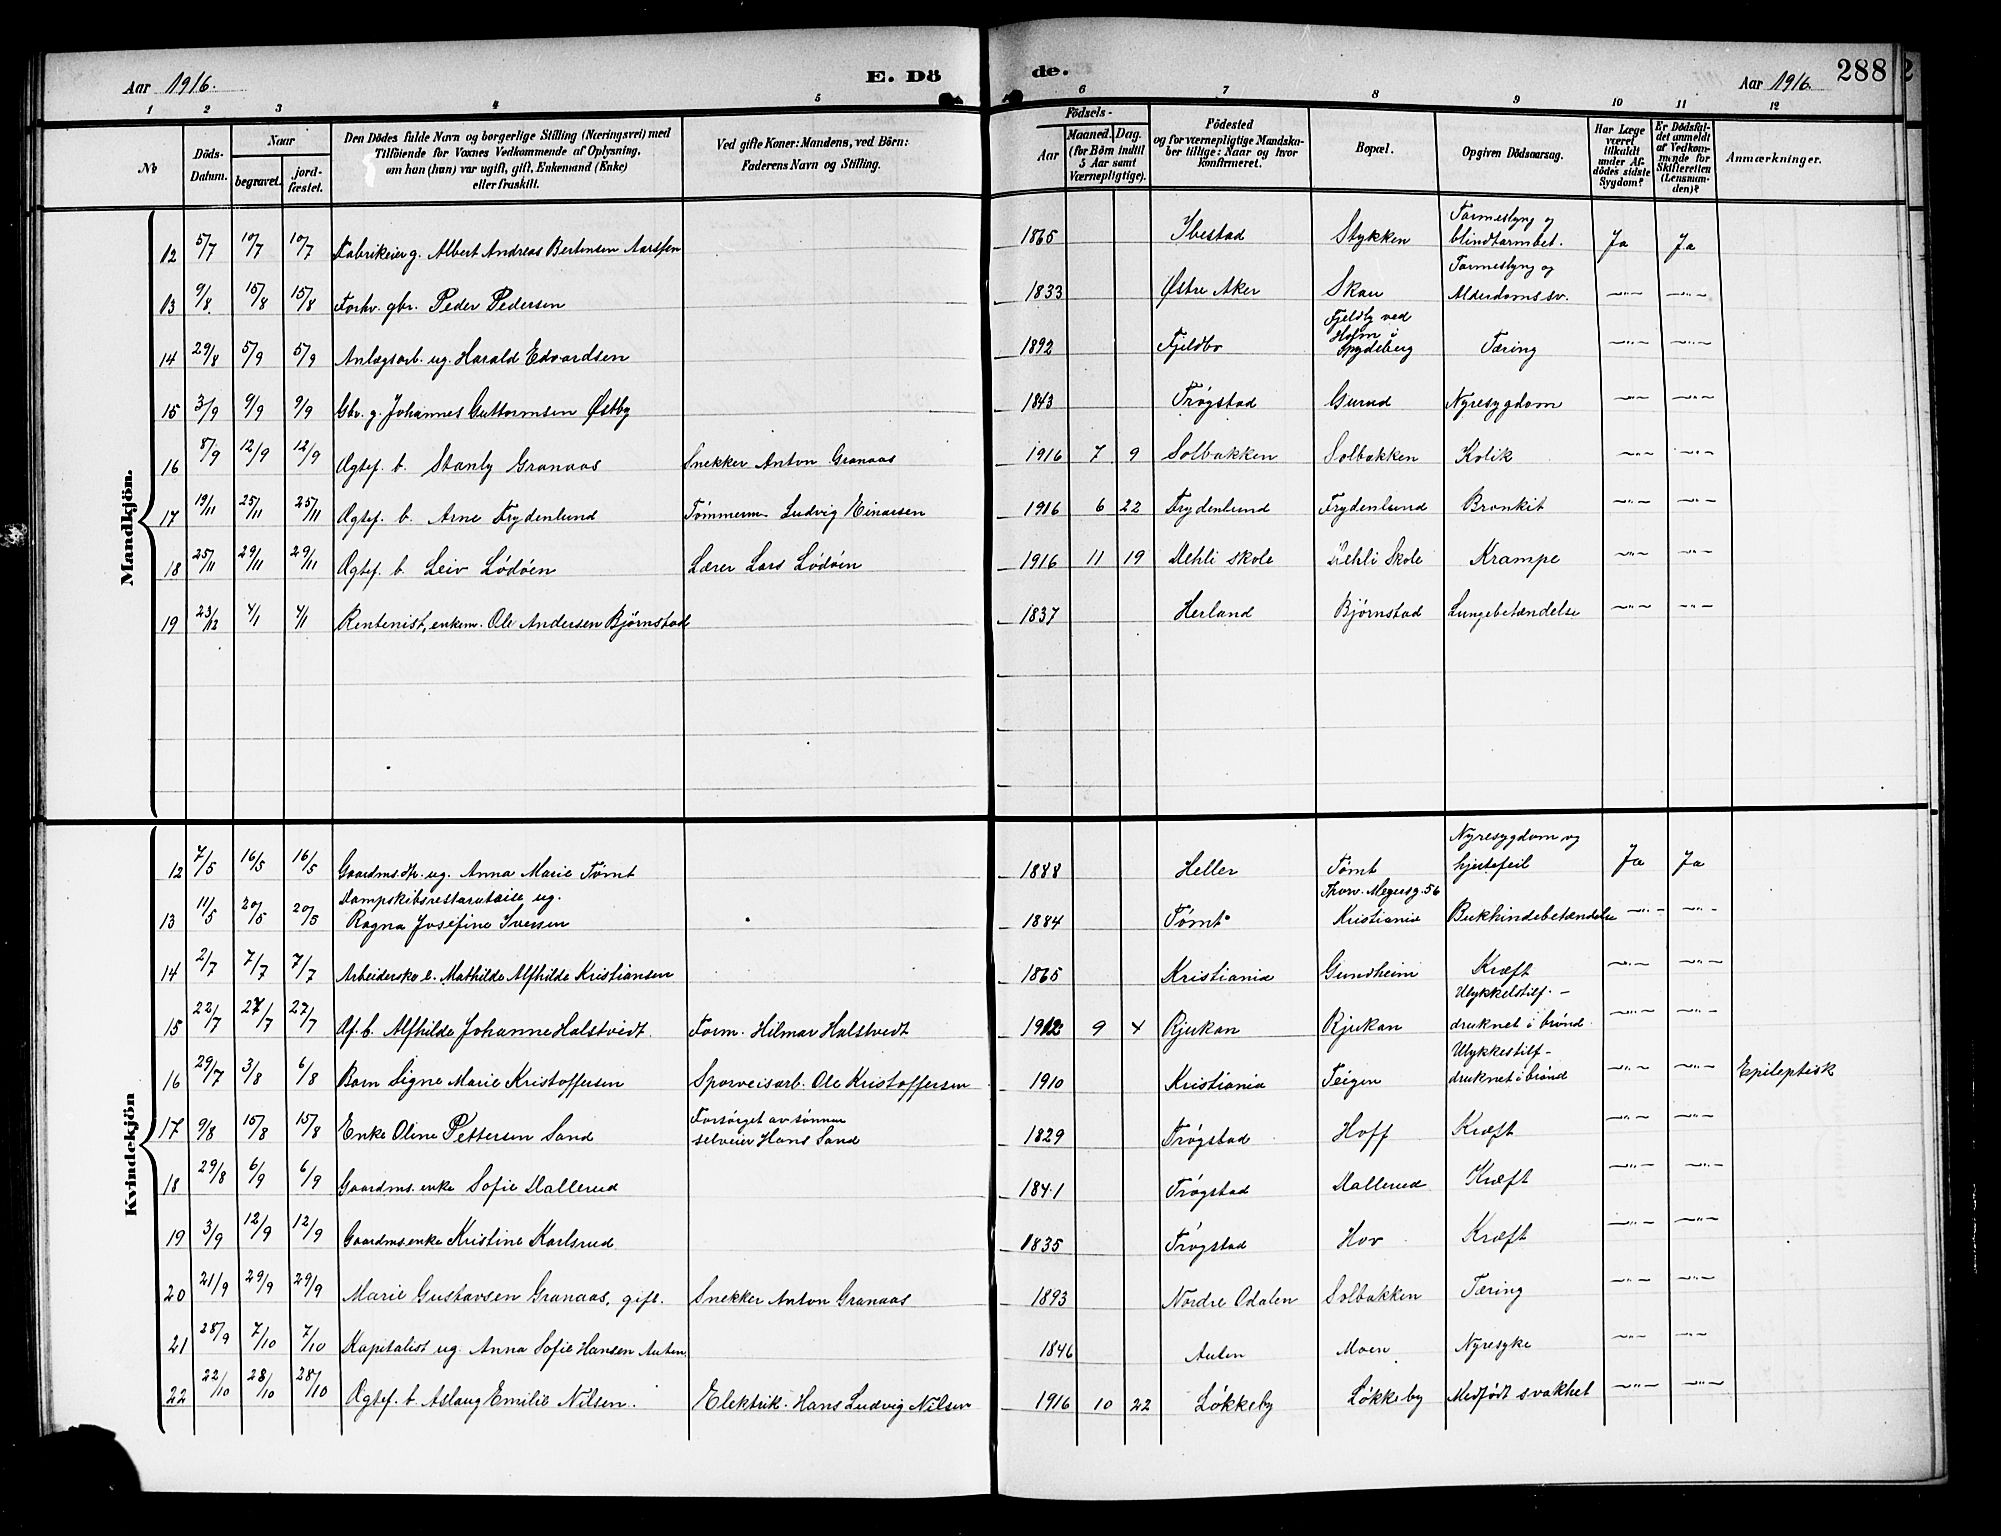 Aar 1916. E. Dö de. Aar 1916. 288
1 2 3 4 5 6 7 8 9 10 11 12
No
Döds-Datum.
Naar begravet. jordfæstet.
Den Dödes fulde Navn og borgerlige Stilling (Næringsvei) med Tilföiende for Voxnes Vedkommende af Oplysning. om han (hun) var ugift, gift, Enkemand (Enke) eller fraskilt.
Ved gifte Koner: Mandens, ved Börn: Faderens Navn og Stilling.
Födsels- Aar Maaned. Dag. (for Börn indtil 5 Aar samt Værnepligtige).
Födested og for værnepligtige Mandskaber tillige: Naar og hvor konfirmeret.
Bopæl.
Opgiven Dödsaarsag.
Har Læge været tilkaldt under Afdödes sidste Sygdom?
Er Dödsfaldet anmeldt af Vedkommende for Skifteretten (Lensmanden)?
Anmærkninger.
Mandkjön.
12 5/7 10/7 10/7 Fabrikeier g. Albert Andreas Bertensen Aarssen 1865 Ibestad Stykken Tarmeslyng og blindtarmbet. Ja Ja
13 9/8. 15/8 15/8 Forhv. gbr. Peder Pedersen 1833 Østre Aker Skau Tarmeslyng og Alderdomssv. —"— —"—
14 29/8 5/9 5/9 Anlægsarb. ug. Harald Edvardsen 1892 Fjeldbo Fjeldby ved Holm i Spydeberg Tæring —"— —"—
15 3/9 9/9 9/9 Gbr. g. Johannes Guttormsen Østby 1843 Trøgstad Gurud Nyresygdom —"— —"—
16 8/9 12/9 12/9 Ægtef. b. Stanly Granaas Snekker Anton Granaas 1916 7 9 Solbakken Solbakken Kolik —"— —"—
17 19/11 25/11 25/11 Ægtef. b. Arne Frydenlund Tømmerm. Ludvig Einarsen 1916 6 22 Frydenlund Frydenlund Bronkit —"— —"—
18 25/11 29/11 29/11 Ægtef. b. Leiv Lödöen Lærer Lars Lödöen 1916 11 19 Mehli skole Mehli Skole Krampe —"— —"—
19 23/12 4/1 4/1 Rentenist, enkem. Ole Andersen Bjørnstad 1837 Herland Bjørnstad Lungebetændelse —"— —"—
Kvindekjön
12 7/5 16/5 16/5 Gaardms.dtr. ug. Anna Marie Tømt 1888 Heller Tømt Nyresygdom og hjertefeil Ja Ja
13 11/5 20/5 20/5 Dampskibsrestauratrice ug. Ragna Josefine Iversen 1884 Tømt Thorv. Meyersg. 56 Kristiania Bukhindebetændelse —"— —"—
14 2/7 7/7 7/7 Arbeiderske e. Mathilde Alfhilde Kristiansen 1865 Kristiania Gundheim Kræft —"— —"—
15 22/7 27/7 27/7 Æf. b. Alfhilde Johanne Halstvedt. Form. Hilmar Halstvedt 1912 9 4 Rjukan Rjukan Ulykkelstilf. — druknet i brønd. —"— —"—
16 29/7 3/8 6/8 Barn Signe Marie Kristoffersen Sporveisarb. Ole Kristoffersen 1910 Kristiania Teigen Ulykkestilf — druknet i brønd —"— —"— Epileptisk
17 9/8 15/8 15/8 Enke Oline Pettersen Sand Forsørget av sønnen selveier Hans Sand 1829 Trøgstad Hoff Kræft —"— —"—
18 29/8 6/9 6/9 Gaardms. enke Sofie Mallerud 1841 Trøgstad Mallerud Kræft —"— —"—
19 3/9 12/9 12/9 Gaardms. enke Kristine Karlsrud 1835 Trøgstad Hov Kræft —"— —"—
20 21/9 29/9 29/9 Marie Gustavsen Granaas, gift. Snekker Anton Granaas 1893 Nordre Odalen Solbakken Tæring —"— —"—
21 28/9 7/10 7/10 Kapitalist ug. Anna Sofie Hansen Auten 1846 Auten Moen Nyresyke —"— —"—
22 22/10 28/10 28/10 Ægtef. b. Aslaug Emilie Nilsen. Elektrik. Hans Ludvig Nilsen 1916 10 22 Løkkeby Løkkeby Medfødt svakhet —"— —"—